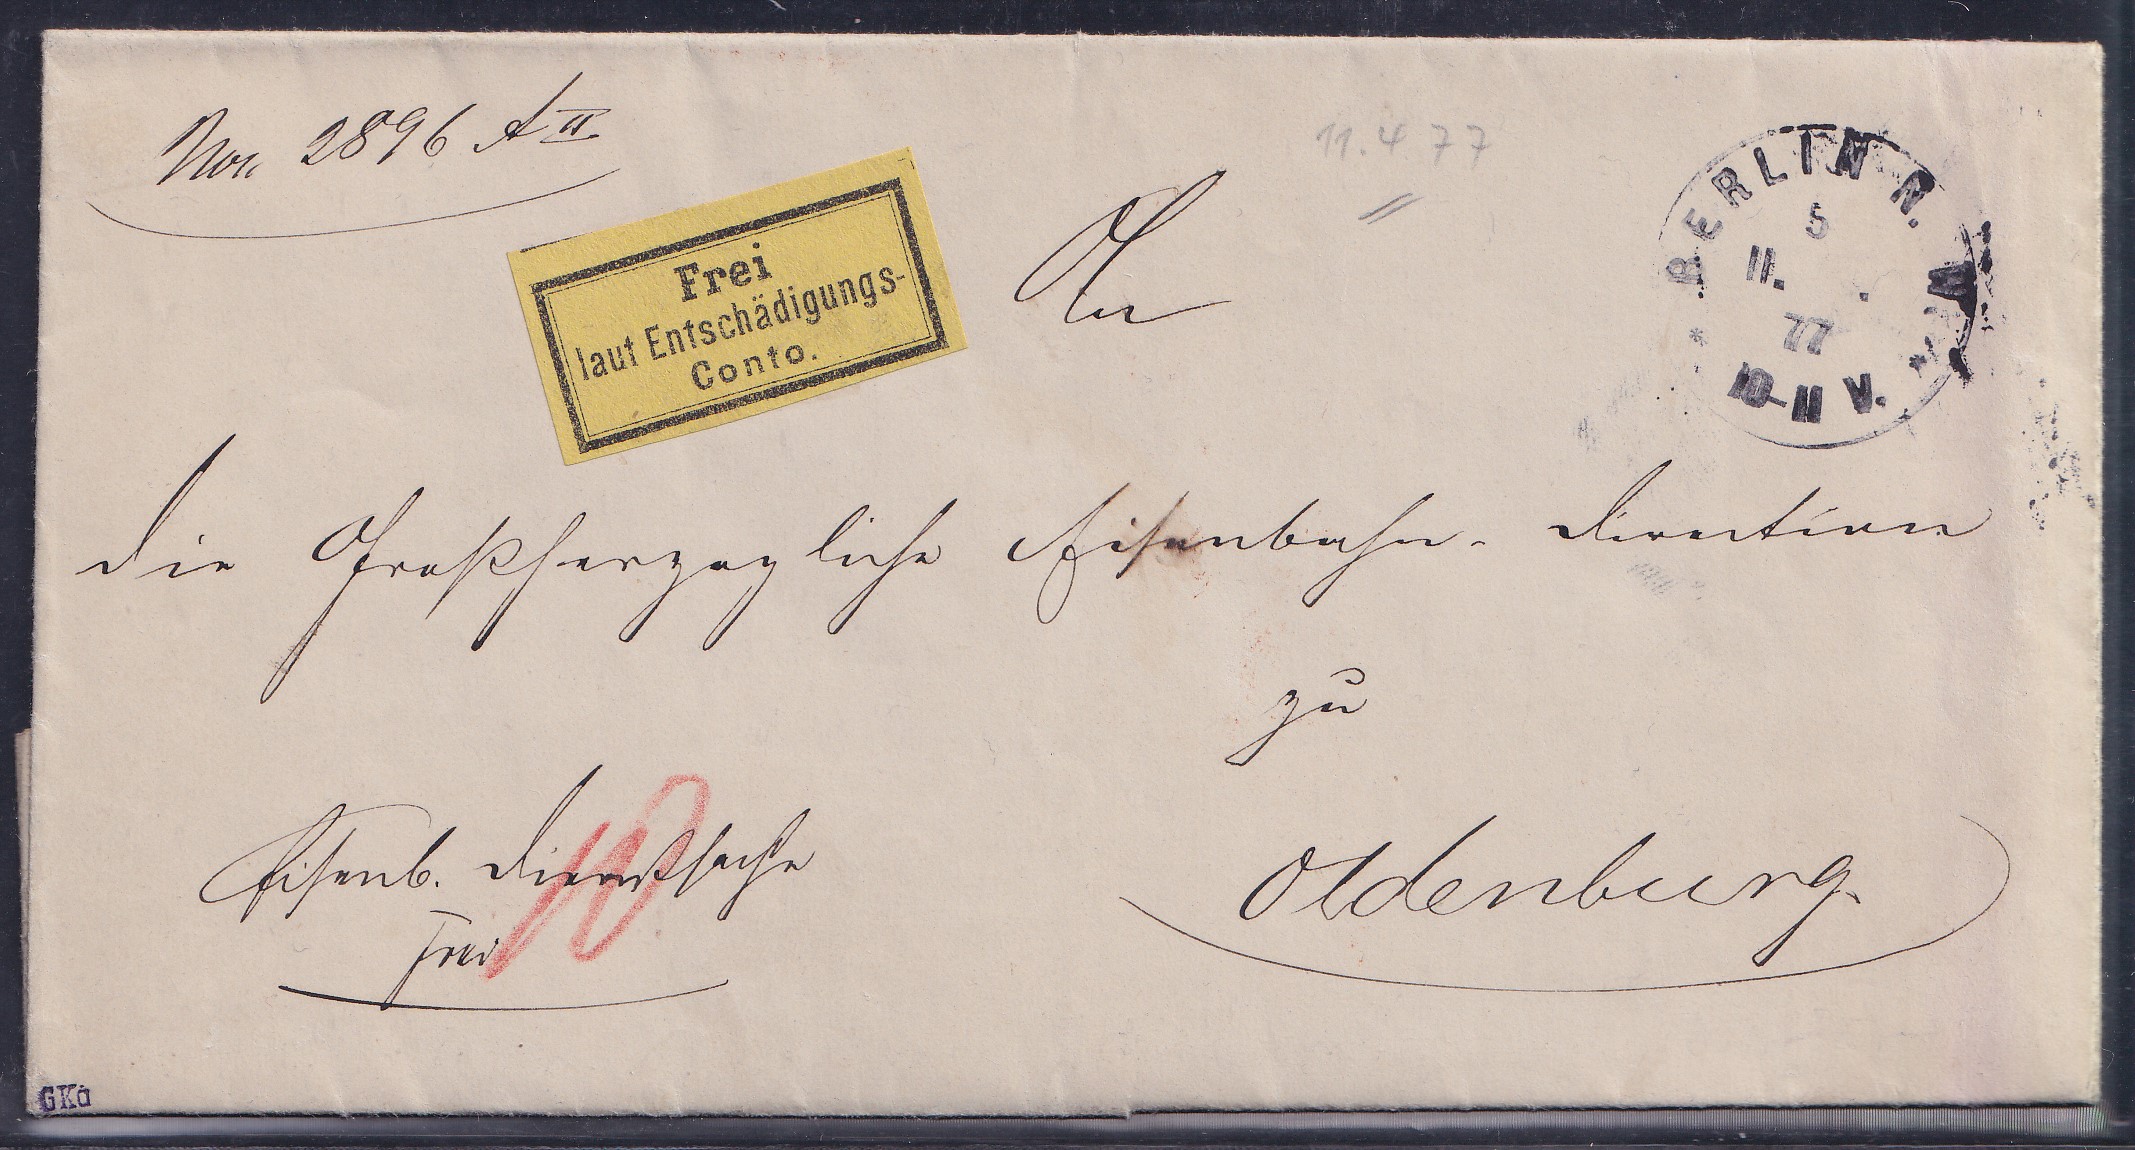 No. 2896 A II
11.4.77
BERLIN N.W.
5
11.
77
10-11 V.
Frei
laut Entschädigungs-
Conto.
An
die Großherzogliche Eisenbahn-Direction
zu
Oldenburg.
Eisenb. Dienstsache
frei
10
GKa